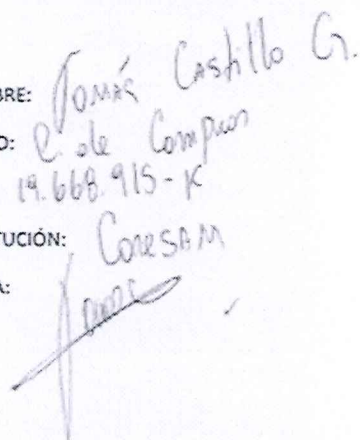 BRE: Tomás Castillo G.
O: C. de Compras
19.668.915-K
TUCIÓN: CORESAM
A: